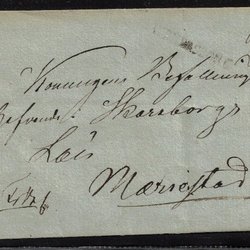 Konungens Befallning
Hafvande i Skaraborgs
Län
Mariestad